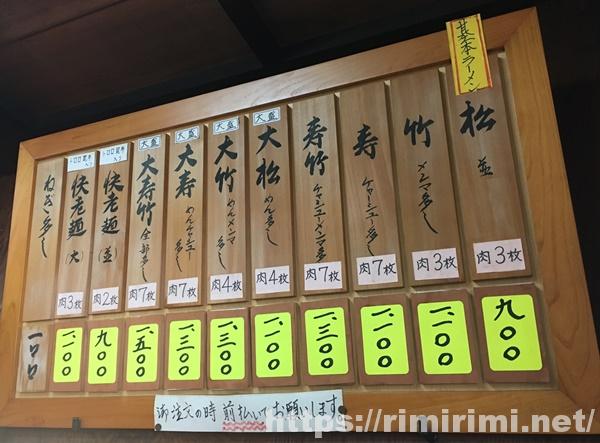 基本ラーメン
松
並
肉3枚
九〇〇
竹
メンマ多し
肉3枚
一、一〇〇
寿
チャーシュー多し
肉7枚
一、一〇〇
寿竹
チャーシューメンマ多し
肉7枚
一、三〇〇
大盛
大松
めん多し
肉4枚
一、一〇〇
大盛
大竹
めんメンマ多し
肉4枚
一、三〇〇
大盛
大寿
めんチャーシュー多し
肉7枚
一、三〇〇
大盛
大寿竹
全部多し
肉7枚
一、五〇〇
トロロ昆布入り
快老麺
(並)
肉2枚
九〇〇
トロロ昆布入り
快老麺
(大)
肉3枚
一、一〇〇
ねぎ多し
一〇〇
御注文の時 前払いでお願いします
https://rimirimi.net/